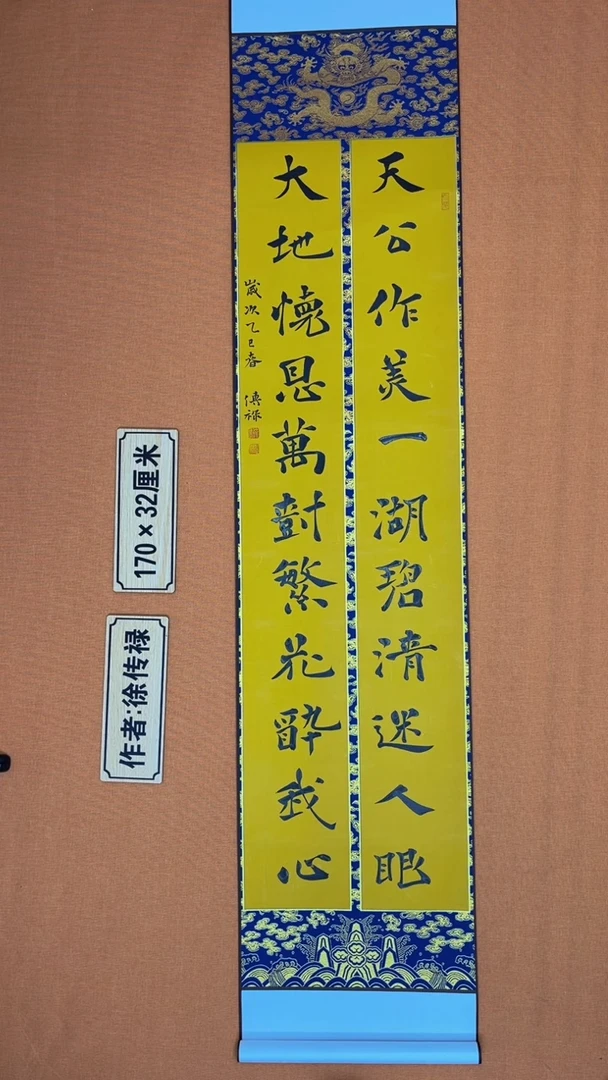 天公作美一湖碧清迷人眼
大地懷恩萬樹繁花醉我心
歲次乙巳春 傳祿
170×32厘米
作者:徐传禄